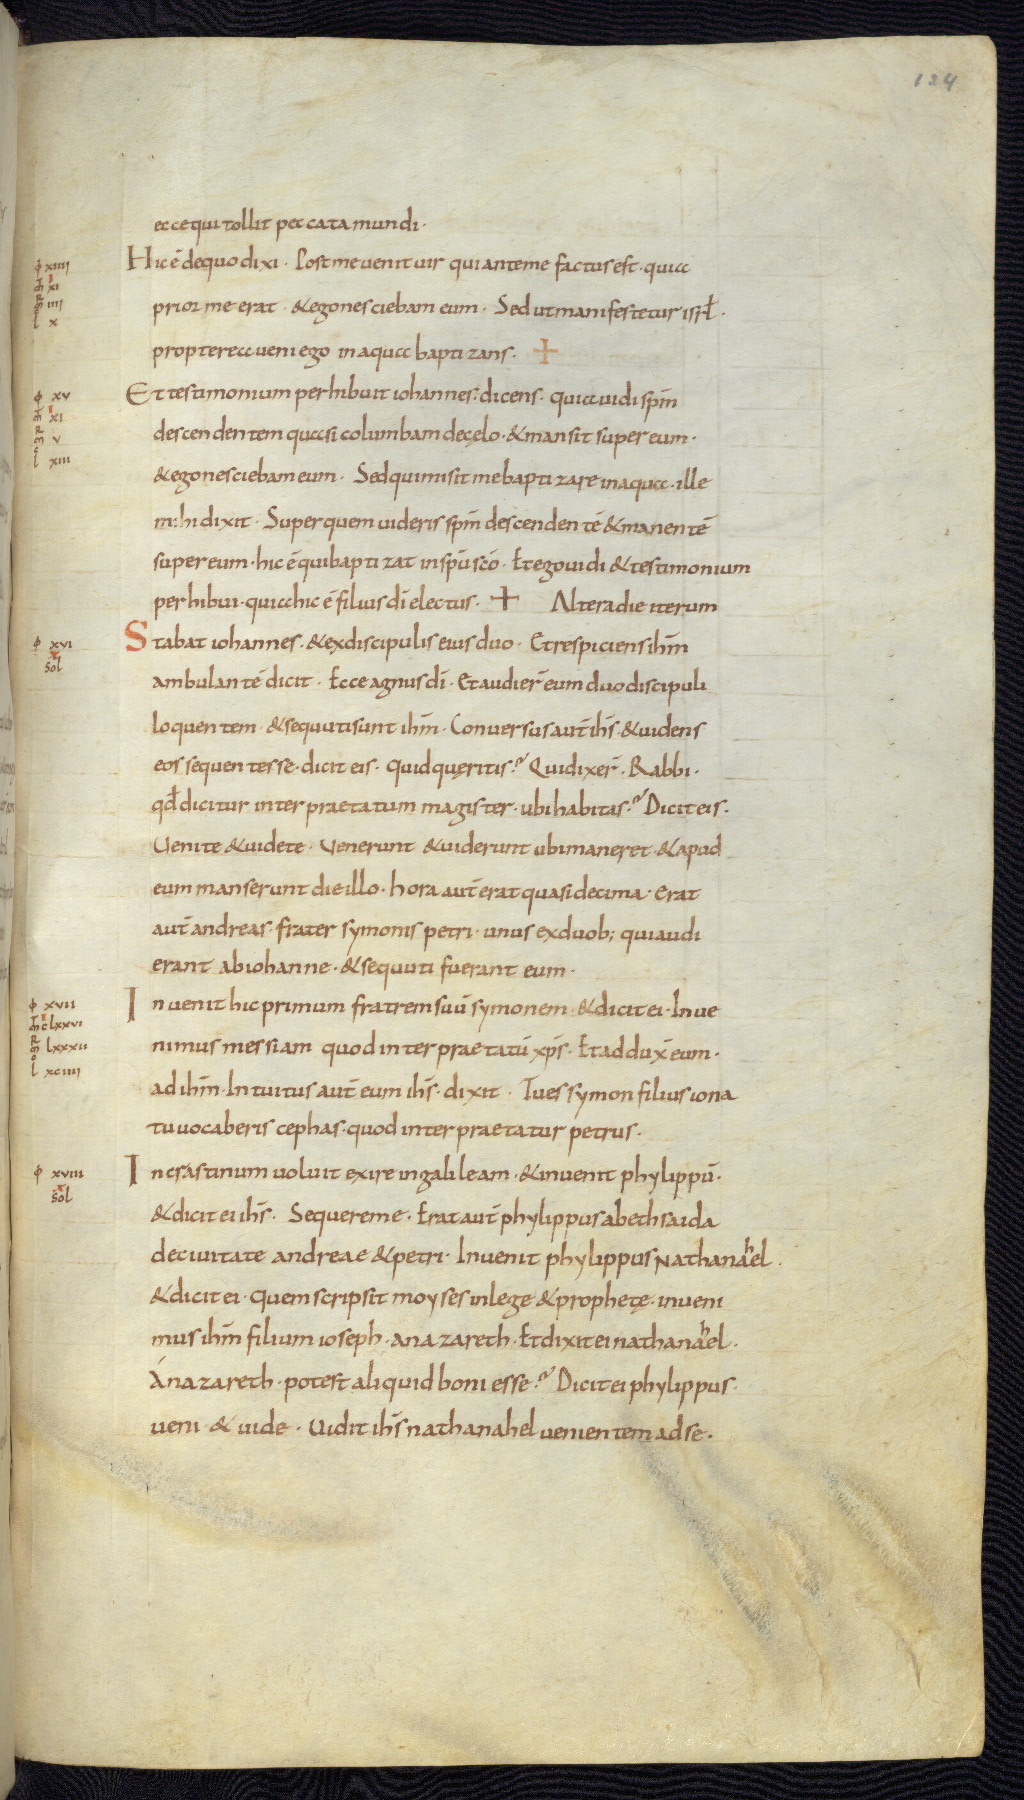 124
ecce qui tollit peccata mundi·
Hic ē de quo dixi· Post me uenit uir qui ante me factus est· quia
prior me erat· & ego nesciebam eum· Sed ut manifestetur isrł·
propterea ueni ego in aqua baptizans· +
Et testimonium perhibuit iohannes: dicens· quia uidi spm̄
descendentem quasi columbam de cęlo· & mansit super eum·
& ego nesciebam eum· Sed qui misit me baptizare in aqua· ille
mihi dixit· Super quem uideris spm̄ descendentē & manentē
super eum· hic ē qui baptizat in spū scō· Et ego uidi & testimonium
perhibui· quia hic ē filius dī electus· + Altera die iterum
Stabat iohannes· & ex discipulis eius duo· Et respiciens ihm̄
ambulantē dicit· Ecce agnus dī· Et audier̄ eum duo discipuli
loquentem· & sequuti sunt ihm̄· Conuersus aut̄ ihs̄· & uidens
eos sequentes se· dicit eis· Quid quęritis? Qui dixer̄· Rabbi·
qđ dicitur interpraetatum magister· ubi habitas? Dicit eis·
Uenite & uidete· Venerunt & uiderunt ubi maneret· & apud
eum manserunt die illo· hora aut̄ erat quasi decima· Erat
aut̄ andreas frater symonis petri· unus ex duob; qui audi
erant ab iohanne· & sequuti fuerant eum·
Inuenit hic primum fratrem suū symonem· & dicit ei· Inue
nimus messiam quod interpraetatū xp̄s· Et addux̄ eum·
ad ihm̄· Intuitus aut̄ eum ihs̄· dixit· Tu es symon filius iona
tu uocaberis cephas· quod interpraetatur petrus·
In crastinum uoluit exire in galileam· & inuenit phylippū·
& dicit ei ihs̄· Sequere me· Erat aut̄ phylippus a bethsaida
de ciuitate andreae & petri· Inuenit phylippus Nathanahel·
& dicit ei· Quem scripsit moyses in lege & prophetę· inueni
mus ihm̄ filium ioseph· a nazareth· Et dixit ei nathanahel·
A nazareth· potest aliquid boni esse? Dicit ei phylippus·
ueni & uide· Uidit ihs̄ nathanahel uenientem ad se·
xiiii
xi
iiii
x
xv
xi
v
xiii
xvi
sol
xvii
clxxvi
lxxxii
xciiii
xviii
sol